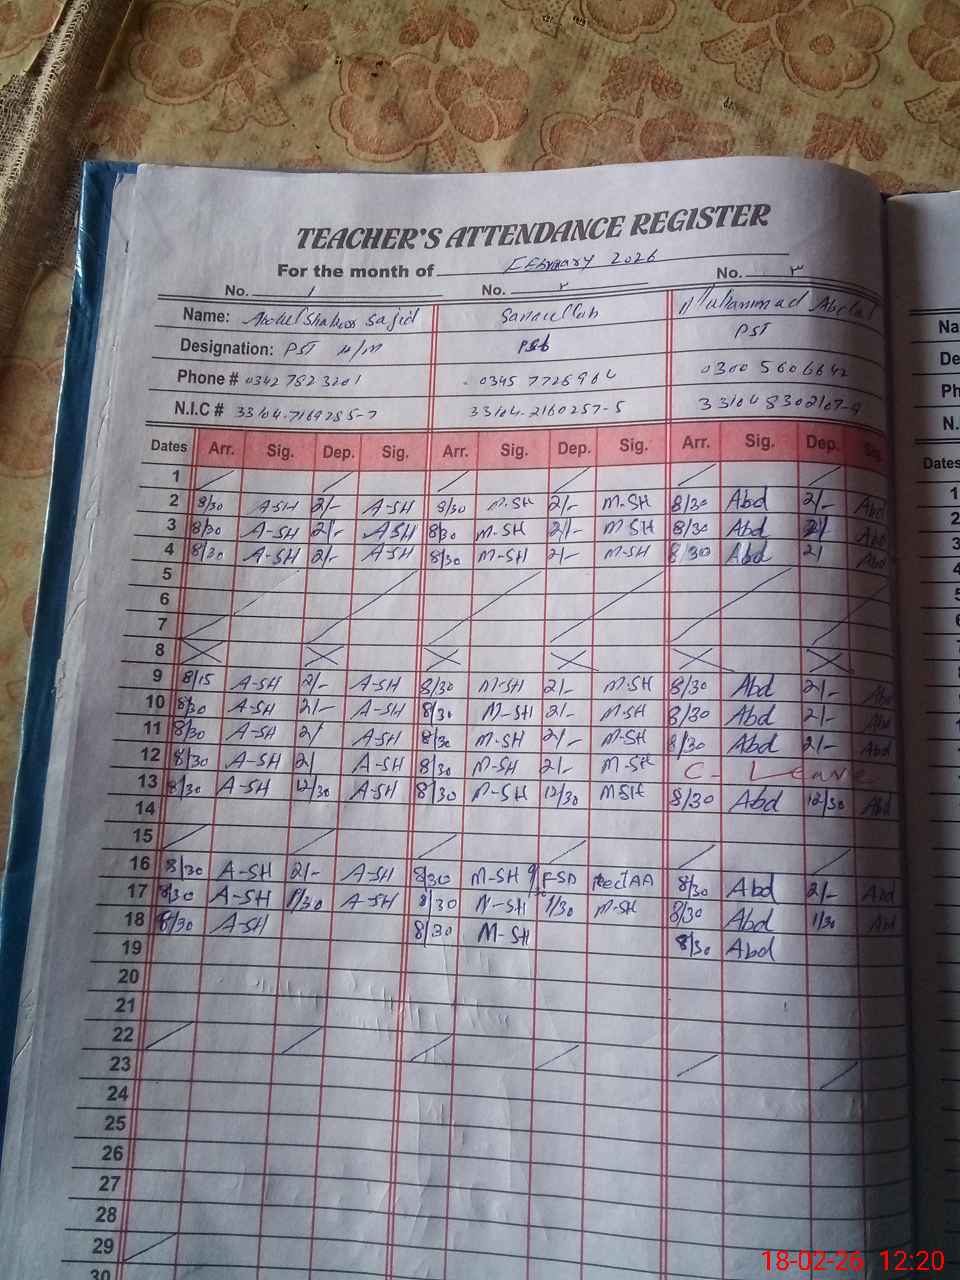 TEACHER'S ATTENDANCE REGISTER
For the month of February 2026
No. 1 No. ۲ No. ۳
Name: Abdul Shakoor Sajid Sanaullah Muhammad Abdul
Designation: PST PST
Phone # 0342 7823201 0345 7726964 0300 5606642
N.I.C # 33104-7169285-7 33104-2160257-5 33104 8302107-9
Dates Arr. Sig. Dep. Sig. Arr. Sig. Dep. Sig. Arr. Sig. Dep. Sig.
1
2 8/30 A-SH 2/- A-SH 8/30 M-SH 2/- M-SH 8/30 Abd 2/- Abd
3 8/30 A-SH 2/- A-SH 8/30 M-SH 2/- M-SH 8/30 Abd 2/- Abd
4 8/30 A-SH 2/- A-SH 8/30 M-SH 2/- M-SH 8/30 Abd 2/ Abd
5
6
7
8
9 8/15 A-SH 2/- A-SH 8/30 M-SH 2/- M-SH 8/30 Abd 2/- Abd
10 8/30 A-SH 2/- A-SH 8/30 M-SH 2/- M-SH 8/30 Abd 2/- Abd
11 8/30 A-SH 2/ A-SH 8/30 M-SH 2/- M-SH 8/30 Abd 2/- Abd
12 8/30 A-SH 2/ A-SH 8/30 M-SH 2/- M-SH C- Leave
13 8/30 A-SH 12/30 A-SH 8/30 M-SH 12/30 M-SH 8/30 Abd 12/30 Abd
14
15
16 8/30 A-SH 2/- A-SH 8/30 M-SH FSD 8/30 Abd 2/- Abd
17 8/30 A-SH 1/30 A-SH 8/30 M-SH 1/30 M-SH 8/30 Abd 1/30 Abd
18 8/30 A-SH 8/30 M-SH 8/30 Abd
19
20
21
22
23
24
25
26
27
28
29
30
Na
De
Ph
N.I
Dates
1
2
3
4
5
6
7
8
9
1
1
1
18-02-26 12:20